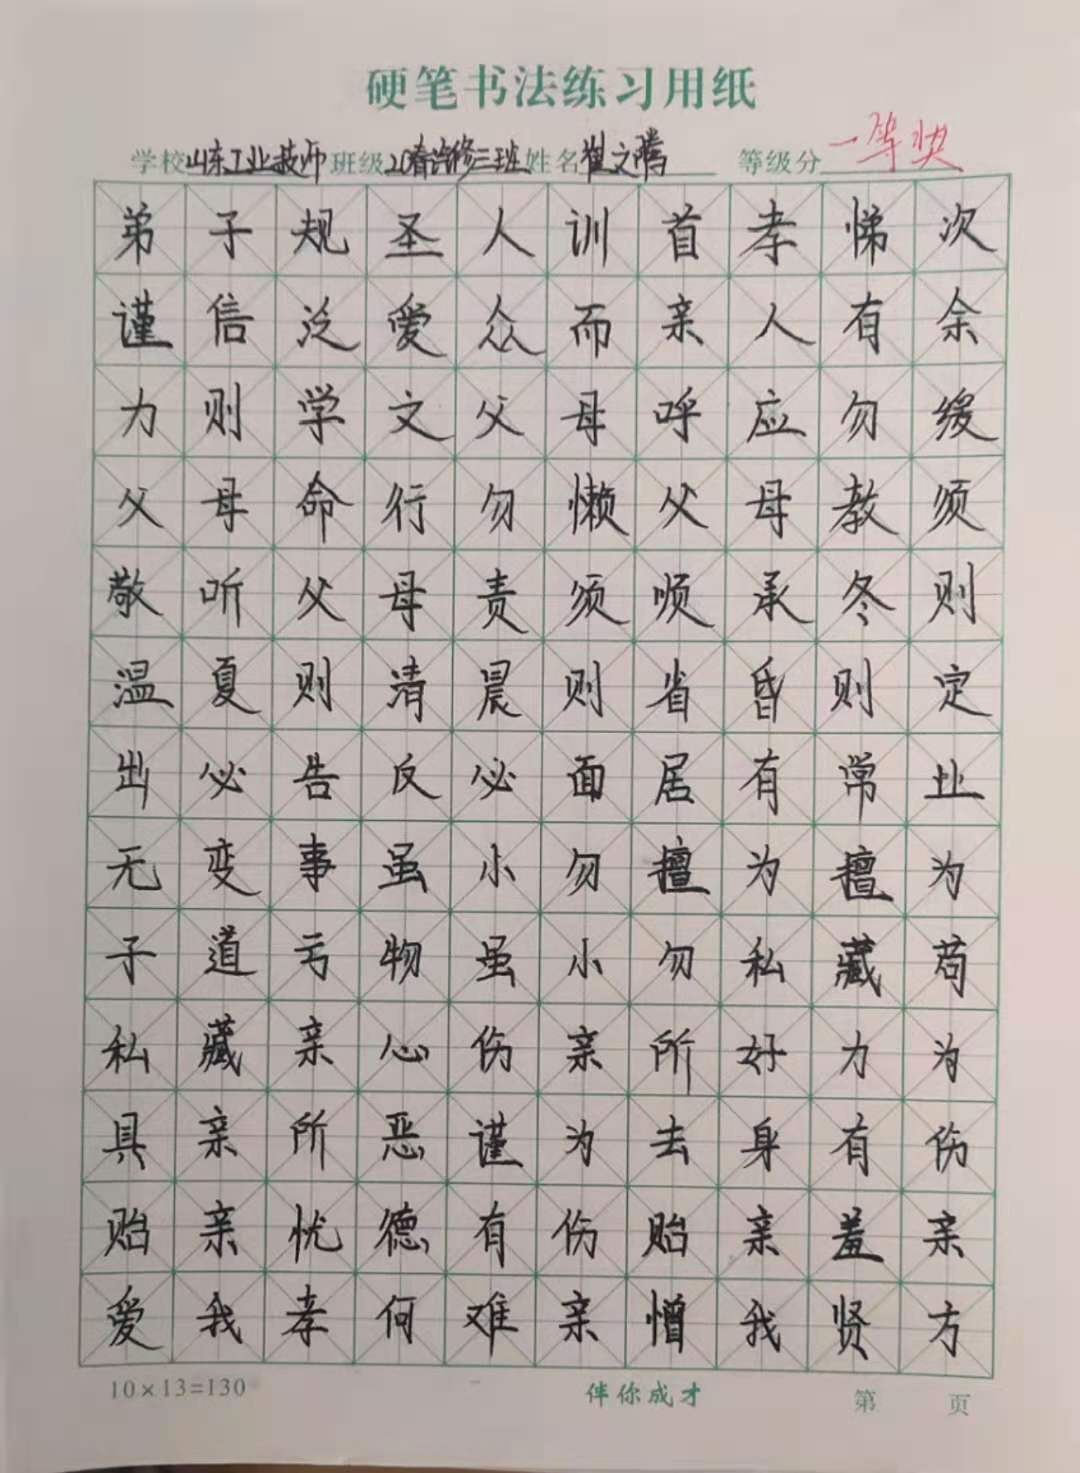 硬笔书法练习用纸
学校山东工业技师班级20春汽修三班姓名崔文腾 等级分一等奖
弟子规圣人训首孝悌次
谨信泛爱众而亲人有余
力则学文父母呼应勿缓
父母命行勿懒父母教须
敬听父母责须顺承冬则
温夏则清晨则省昏则定
出必告反必面居有常业
无变事虽小勿擅为擅为
子道亏物虽小勿私藏苟
私藏亲心伤亲所好力为
具亲所恶谨为去身有伤
贻亲忧德有伤贻亲羞亲
爱我孝何难亲憎我贤方
10×13=130 伴你成才 第 页